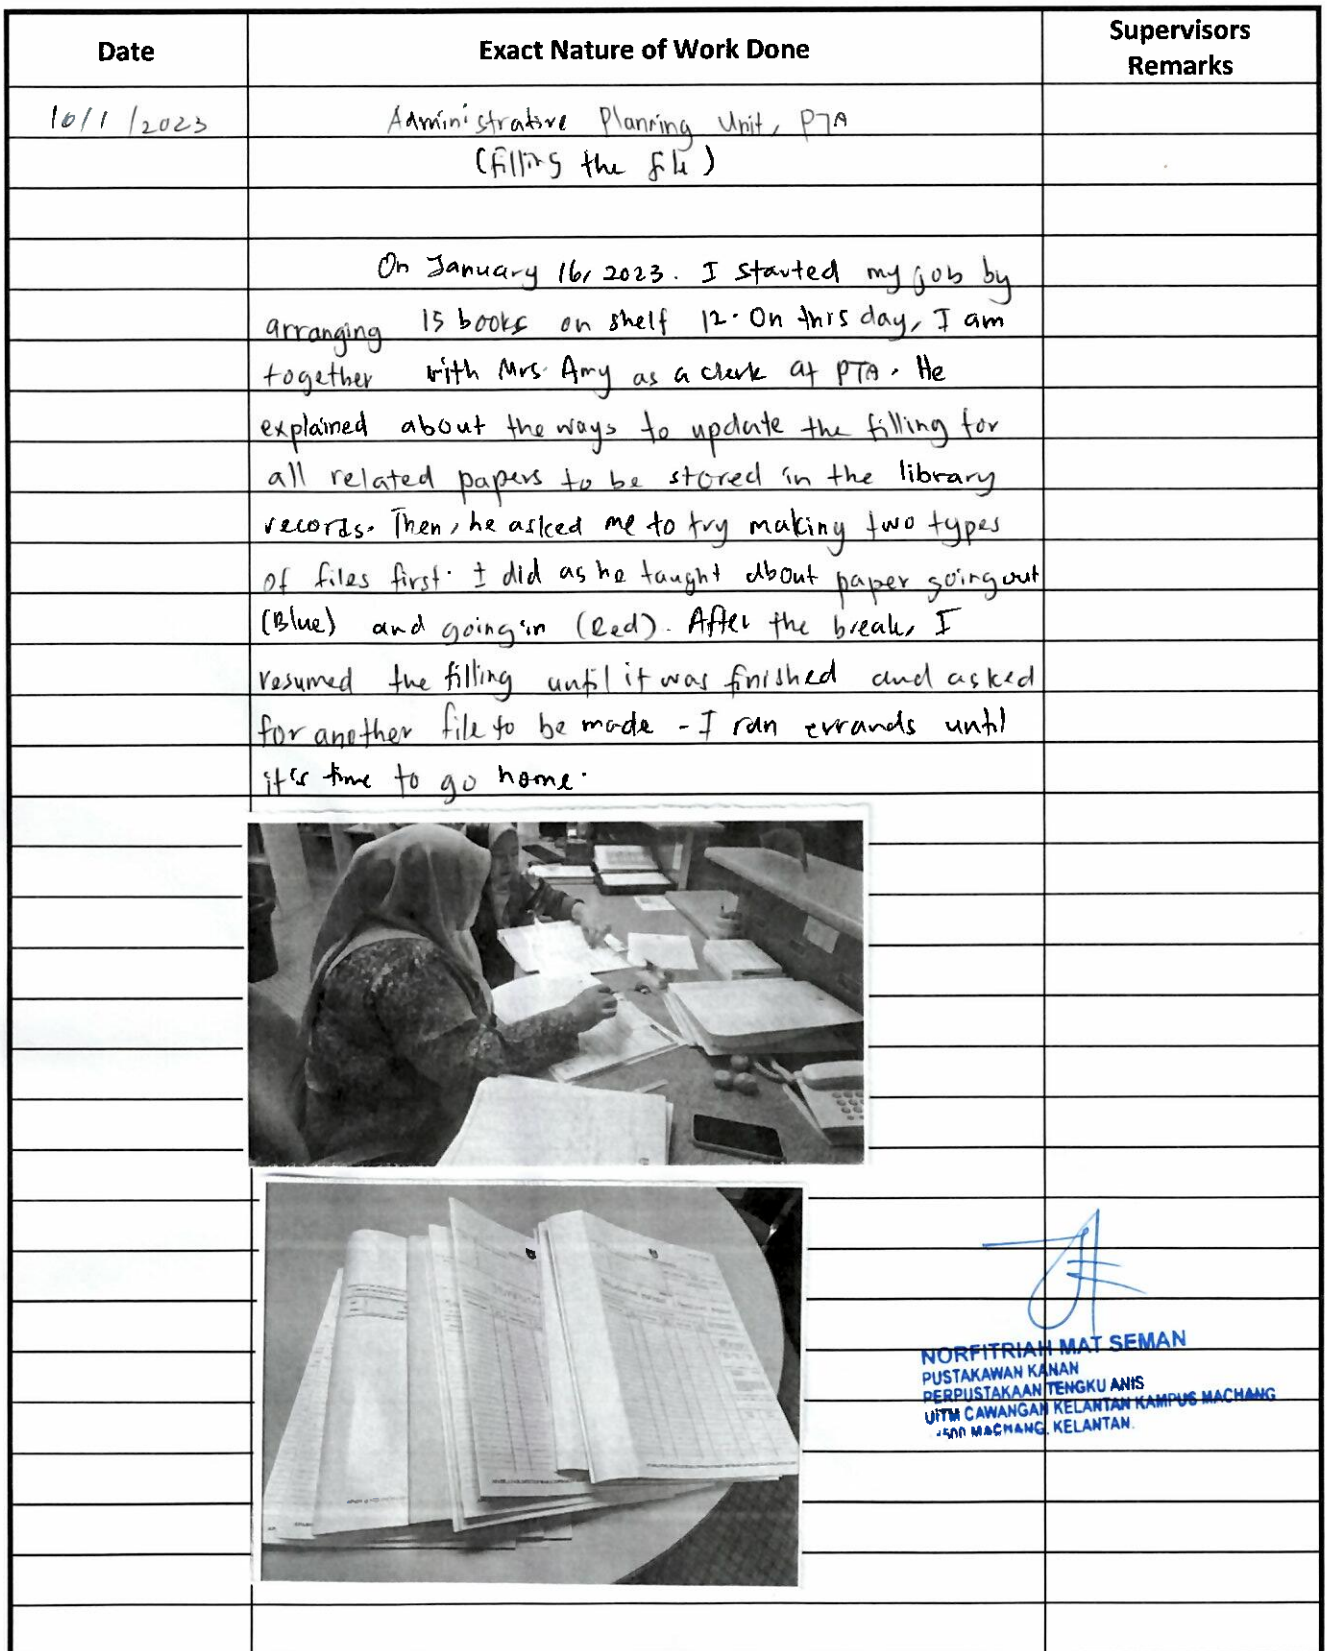 Date Exact Nature of Work Done Supervisors Remarks
16/1/2023 Administrative Planning Unit, PTA
(filling the file)
On January 16, 2023. I started my job by
arranging 15 books on shelf 12. On this day, I am
together with Mrs. Amy as a clerk at PTA. He
explained about the ways to update the filling for
all related papers to be stored in the library
records. Then, he asked me to try making two types
of files first. I did as he taught about paper going out
(Blue) and going in (Red). After the break, I
resumed the filling until it was finished and asked
for another file to be made - I ran errands until
it's time to go home.
NORFITRIAH MAT SEMAN
PUSTAKAWAN KANAN
PERPUSTAKAAN TENGKU ANIS
UiTM CAWANGAN KELANTAN KAMPUS MACHANG
MACHANG, KELANTAN.